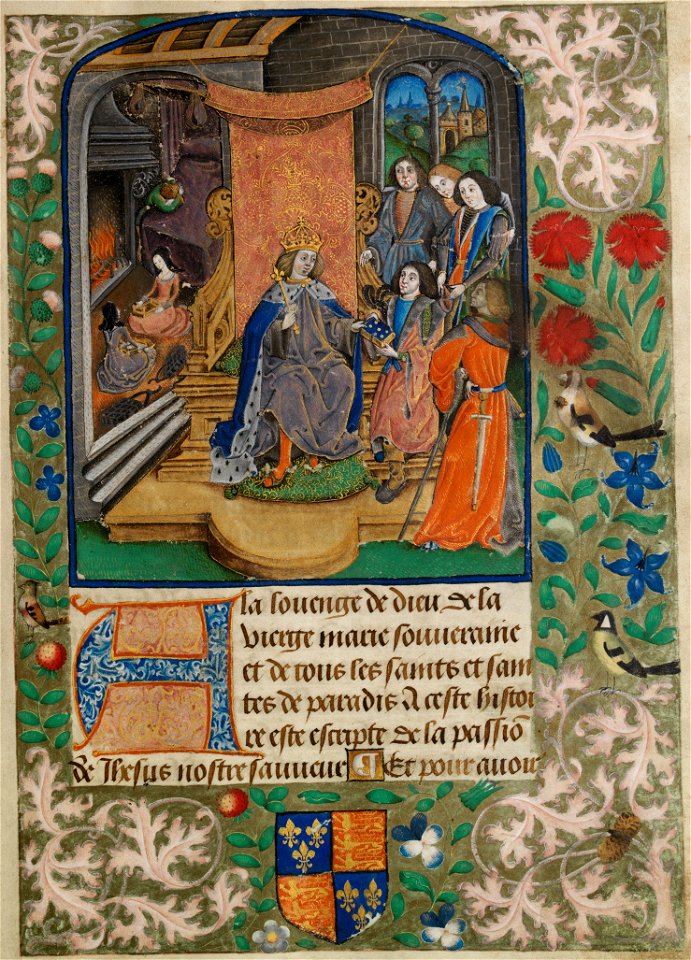 A la louenge de dieu de la
vierge marie souveraine
et de tous les saints et sain
tes de paradis A ceste histoi
re est escripte de la passiō
de Ihesus nostre sauveur Et pour avoir